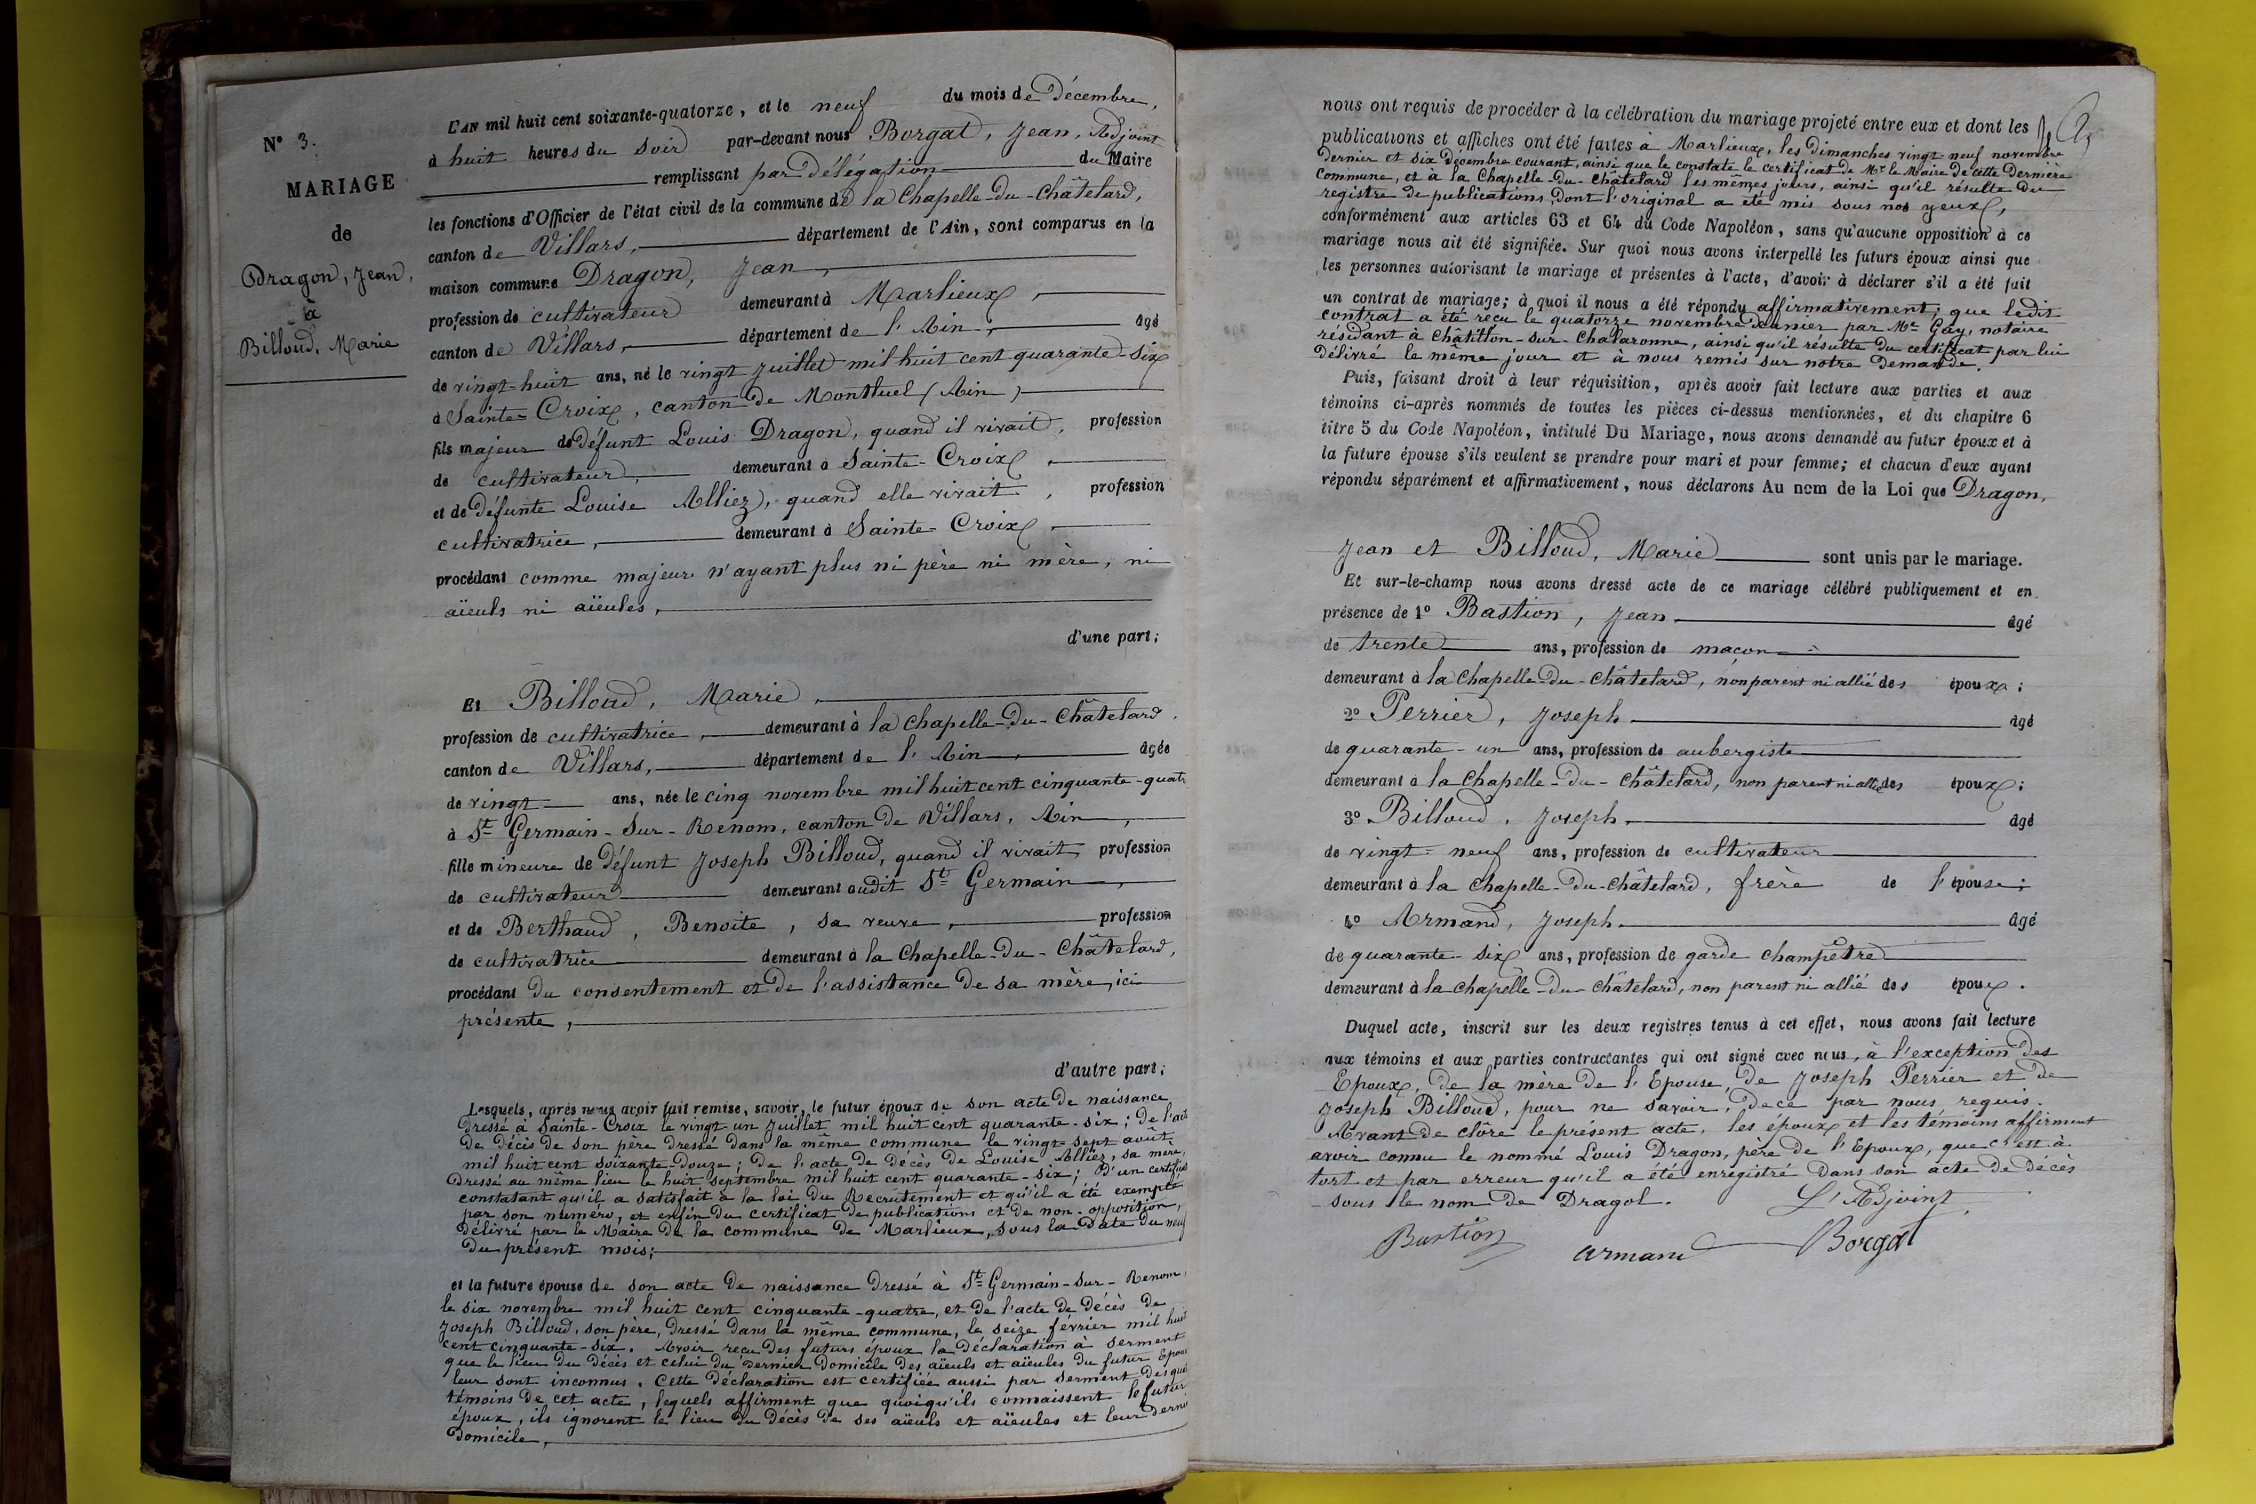 N° 3.
MARIAGE
de
Dragon, Jean,
à
Billoud, Marie
L'AN mil huit cent soixante-quatorze, et le neuf du mois de Décembre,
à huit heures du soir par-devant nous Borgat, Jean, Adjoint
remplissant par Délégation du Maire
les fonctions d'Officier de l'état civil de la commune de la Chapelle-Du-Châtelard,
canton de Villars, département de l'Ain, sont comparus en la
maison commune Dragon, Jean,
profession de cultivateur demeurant à Marlieux,
canton de Villars, département de l'Ain, âgé
de vingt-huit ans, né le vingt juillet mil huit cent quarante-six
à Sainte-Croix, canton de Montluel (Ain)
fils majeur de Défunt Louis Dragon, quand il vivait, profession
de cultivateur, demeurant à Sainte-Croix,
et de Défunte Louise Alliez, quand elle vivait, profession
cultivatrice, demeurant à Sainte-Croix,
procédant comme majeur n'ayant plus ni père ni mère, ni
aïeuls ni aïeules,
d'une part;
Et Billoud, Marie,
profession de cultivatrice, demeurant à la Chapelle-Du-Châtelard,
canton de Villars, département de l'Ain, âgée
de vingt ans, née le cinq novembre mil huit cent cinquante-quat
à St Germain-Sur-Renom, canton de Villars, Ain,
fille mineure de Défunt Joseph Billoud, quand il vivait, profession
de cultivateur demeurant audit St Germain,
et de Berthaud, Benoite, sa veuve, profession
de cultivatrice demeurant à la Chapelle-Du-Châtelard,
procédant Du consentement et De l'assistance De sa mère, ici
présente,
d'autre part;
Lesquels, après nous avoir fait remise, savoir, le futur époux de son acte De naissance
Dressé à Sainte-Croix le vingt un Juillet mil huit cent quarante-six; De l'acte
De Décès De son père Dressé Dans la même commune le vingt-sept août
mil huit cent soixante-Douze; De l'acte De Décès De Louise Alliez, sa mère,
Dressé au même lieu le huit septembre mil huit cent quarante-six; D'un certificat
constatant qu'il a satisfait à la loi Du Recrutement et qu'il a été exempté
par son numéro, et enfin Du certificat De publications et De non-opposition,
Délivré par le Maire De la commune De Marlieux, sous la Date Du neuf
Du présent mois;
et la future épouse de son acte De naissance Dressé à St Germain-Sur-Renom,
le six novembre mil huit cent cinquante-quatre, et De l'acte De Décès De
Joseph Billoud, son père, Dressé Dans la même commune, le seize février mil huit
cent cinquante-six. Avoir reçu Des futurs époux la Déclaration à serment
que le lieu Du Décès et celui Du Dernier Domicile Des aïeuls et aïeules Du futur Epoux
leur sont inconnus. Cette Déclaration est certifiée aussi par serment Des quat
témoins De cet acte, lequels affirment que quoiqu'ils connaissent le futur
époux, ils ignorent le lieu Du Décès De ses aïeuls et aïeules et leur Dernier
Domicile,
nous ont requis de procéder à la célébration du mariage projeté entre eux et dont les
publications et affiches ont été faites à Marlieux, les Dimanches vingt neuf novembre
Dernier et six Décembre courant, ainsi que le constate le certificat De Mr le Maire De cette Dernière
Commune, et à la Chapelle-Du-Châtelard les mêmes jours, ainsi qu'il résulte Du
registre De publications, Dont l'original a été mis sous nos yeux,
conformément aux articles 63 et 64 du Code Napoléon, sans qu'aucune opposition à ce
mariage nous ait été signifiée. Sur quoi nous avons interpellé les futurs époux ainsi que
les personnes autorisant le mariage et présentes à l'acte, d'avoir à déclarer s'il a été fait
un contrat de mariage; à quoi il nous a été répondu affirmativement; que ledit
contrat a été reçu le quatorze novembre Dernier par Me Gay, notaire
résidant à Châtillon-sur-Chalaronne, ainsi qu'il résulte Du certificat par lui
Délivré le même jour et à nous remis sur notre Demande.
Puis, faisant droit à leur réquisition, après avoir fait lecture aux parties et aux
témoins ci-après nommés de toutes les pièces ci-dessus mentionnées, et du chapitre 6
titre 5 du Code Napoléon, intitulé Du Mariage, nous avons demandé au futur époux et à
la future épouse s'ils veulent se prendre pour mari et pour femme; et chacun d'eux ayant
répondu séparément et affirmativement, nous déclarons Au nom de la Loi que Dragon,
Jean et Billoud, Marie sont unis par le mariage.
Et sur-le-champ nous avons dressé acte de ce mariage célébré publiquement et en
présence de 1° Bastion, Jean âgé
de trente ans, profession de maçon
demeurant à la Chapelle-Du-Châtelard, non parent ni allié des époux;
2° Perrier, Joseph âgé
de quarante-un ans, profession de aubergiste
demeurant à la Chapelle-Du-Châtelard, non parent ni allié des époux;
3° Billoud, Joseph âgé
de vingt-neuf ans, profession de cultivateur
demeurant à la Chapelle-Du-Châtelard, frère de l'épouse;
4° Armand, Joseph âgé
de quarante-six ans, profession de garde champêtre
demeurant à la Chapelle-Du-Châtelard, non parent ni allié des époux.
Duquel acte, inscrit sur les deux registres tenus à cet effet, nous avons fait lecture
aux témoins et aux parties contractantes qui ont signé avec nous, à l'exception Des
Epoux, De la mère De l'Epouse, De Joseph Perrier et De
Joseph Billoud, pour ne savoir, De ce par nous requis.
Avant De clôre le présent acte, les époux et les témoins affirment
avoir connu le nommé Louis Dragon, père De l'Epoux, que c'est à
tort et par erreur qu'il a été enregistré Dans son acte De Décès
sous le nom De Dragol. L'Adjoint,
Bastion armand Borgat